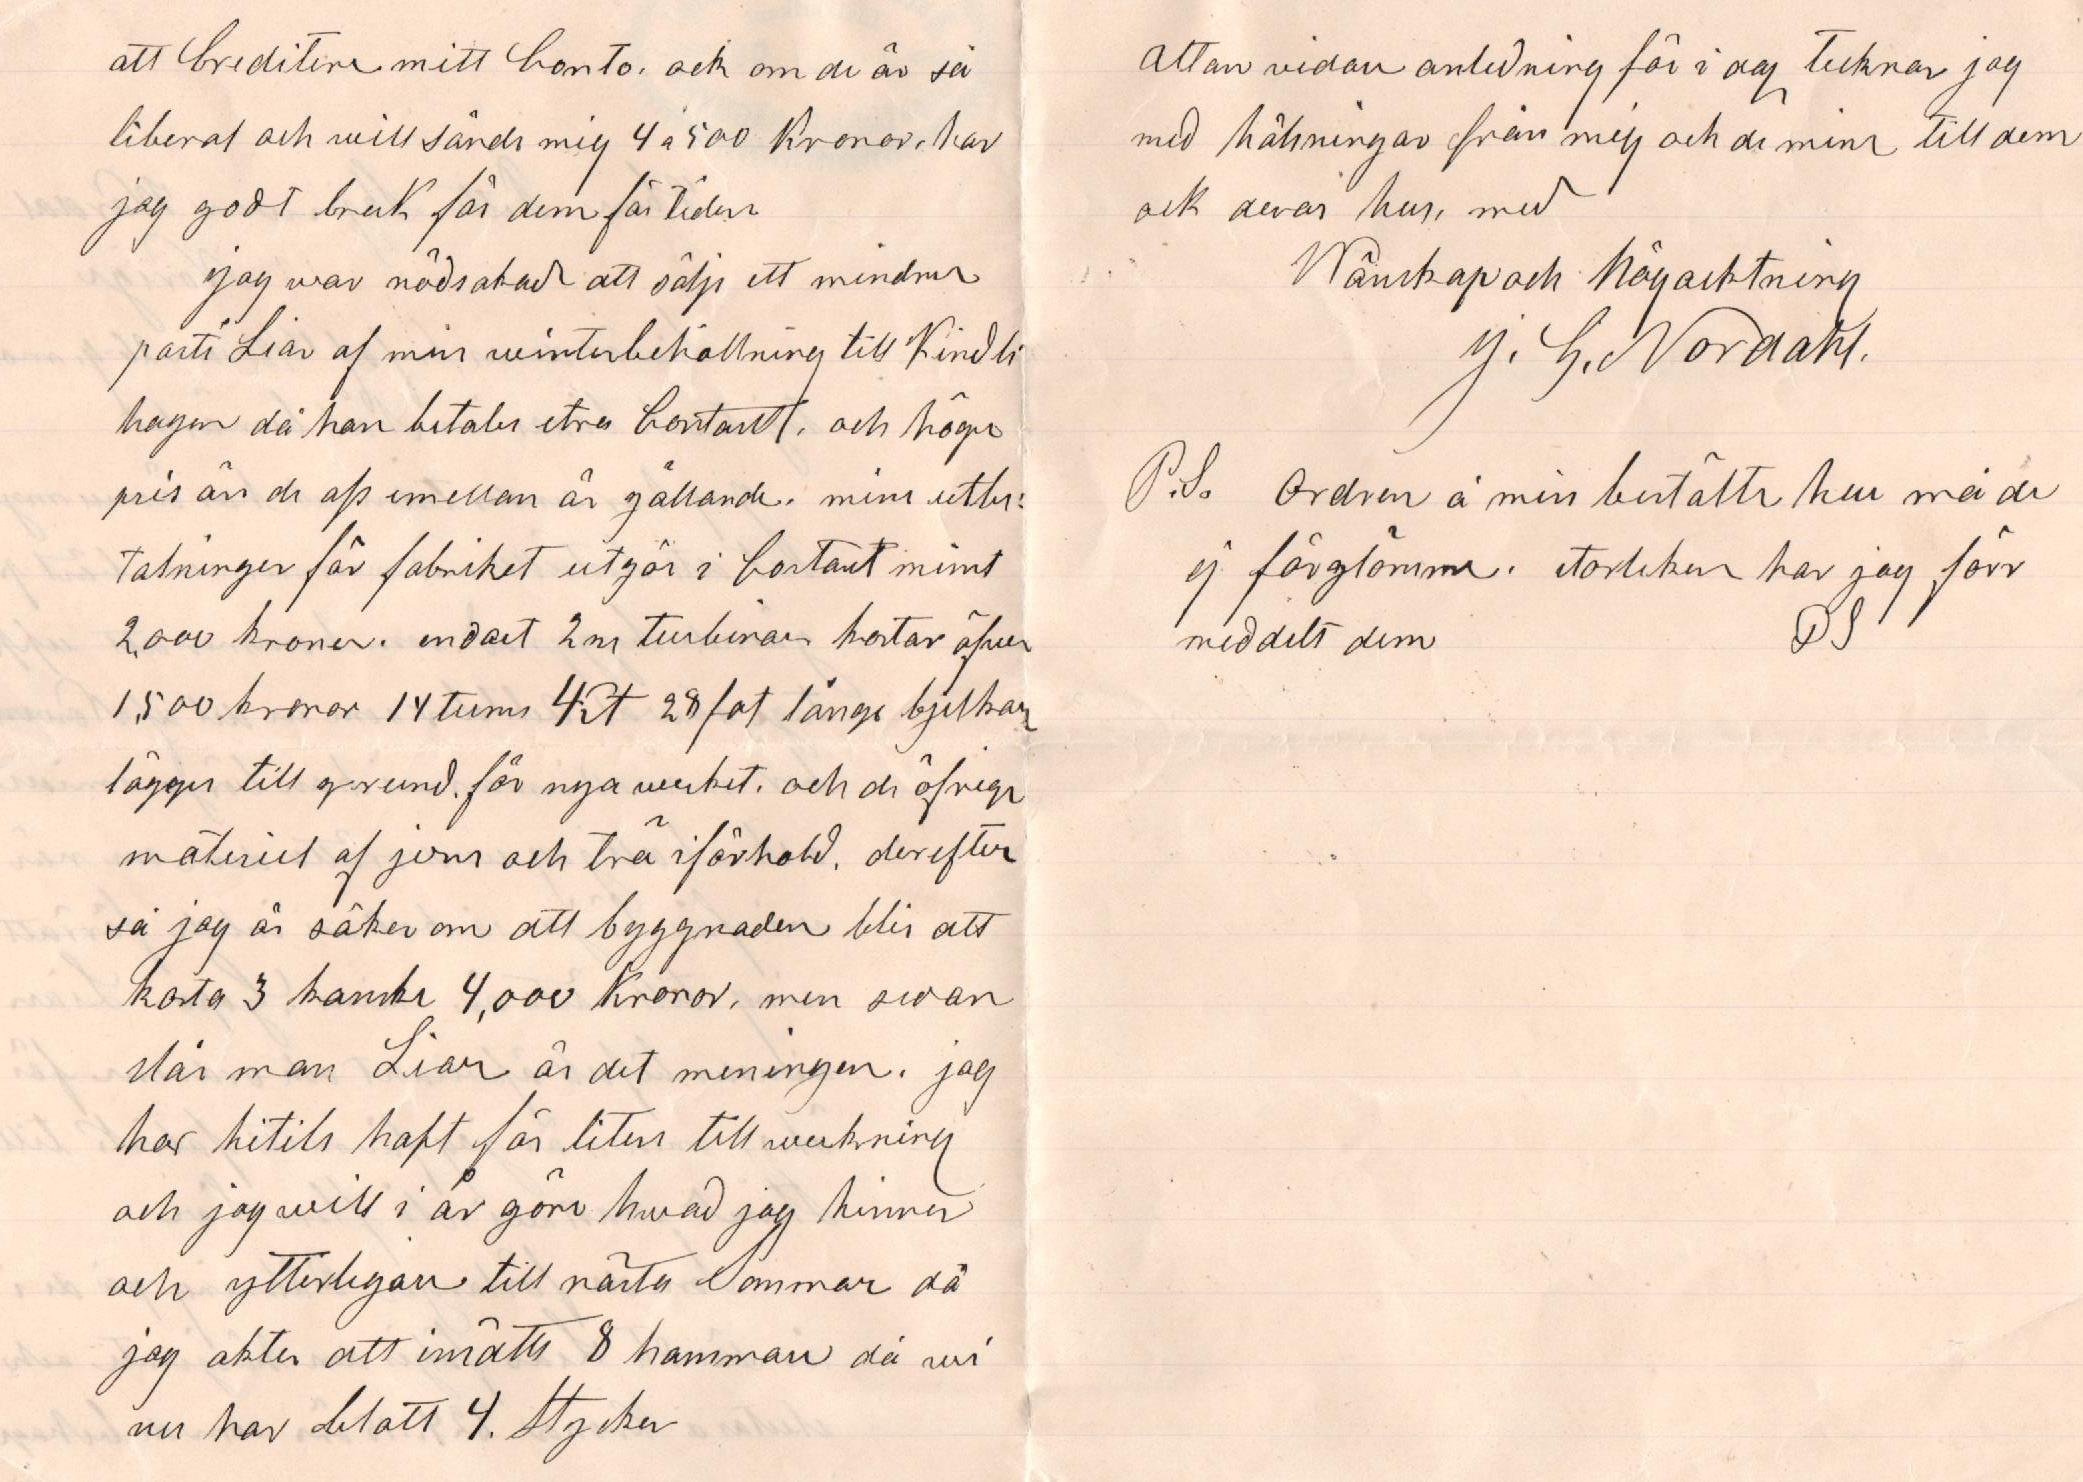 att Creditera mitt Conto. ock om de är så
liberal och will sända mig 4 a 500 Kronor. har
jag godt bruk får dem får tiden
jag war nödsakad att sälja ett mindre
parti Liar af min winterbehållning till Kindli
hagen då han betaler stra Contant. och högre
pris än de oss emellan är gällande. mina utbe:
talninger får fabriket utgör i Contant minst
2,000 kroner. endast 2ne turbinar kostar öfver
1,500 kronor 14 tums 28 fot långa bjelkar
lägges till grund. får nya werket. och de öfriga
materiel af jern och trä i förhold. derefter
så jag är säker om att byggnaden blir att
kosta 3 kanske 4,000 Kronor. men sedan
slår man Liar är det meningen. jag
har hitils haft får liten tillwerkning
och jag will i år göra hwad jag hinner
och ytterligare till nästa Sommar då
jag akter att insätta 8 hammare då wi
nu har blott 4. Stycker
Uttan vidare anledning får i dag tecknar jag
med hälsningar från mig och de mina till dem
ock deras hus. med
Wänskap och Högacktning
J. G. Nordahl.
P.S. Ordren å min bestälte hue må de
ej förglömma. storleken har jag förr
meddelt dem DS